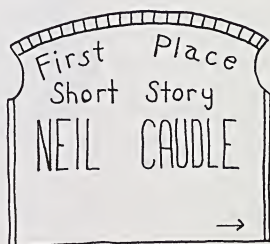 First Place
Short Story
NEIL CAUDLE
→